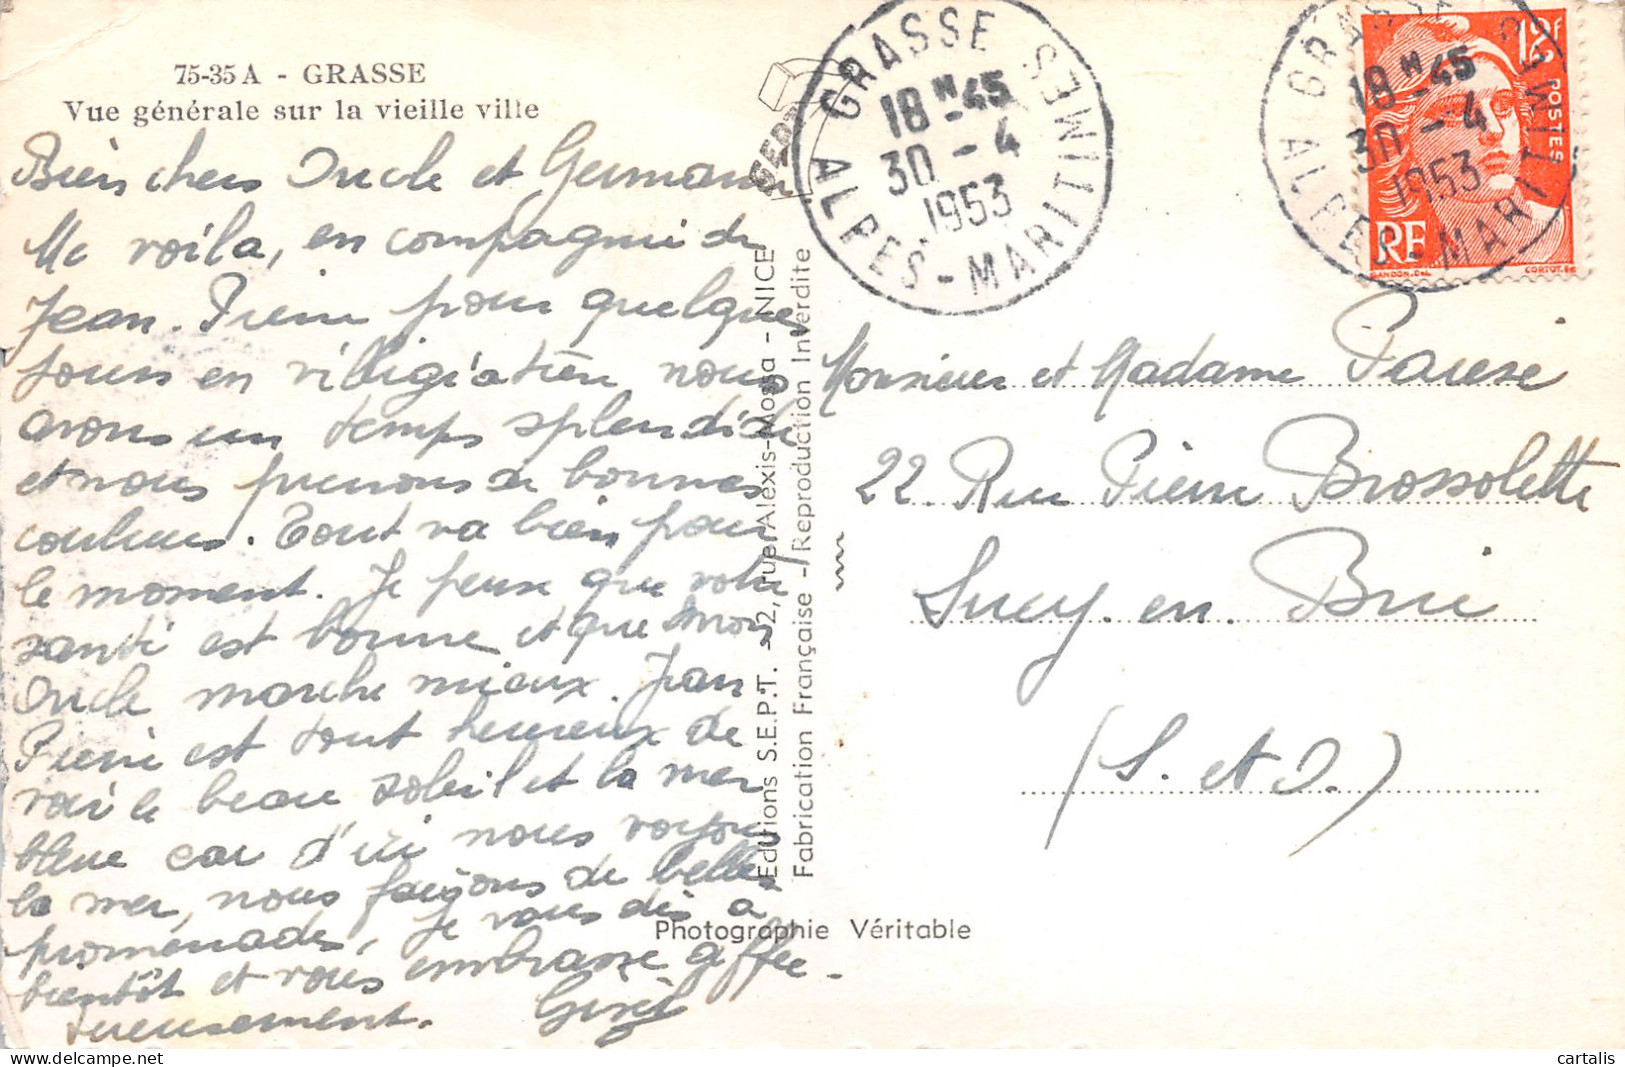 75-35 A - GRASSE
Vue générale sur la vieille ville
Bien chers Oncle et Germaine
Me voila, en compagnie de
Jean-Pierre pour quelques
jours en villégiation, nous
avons un temps splendide
et nous prenons de bonnes
couleurs. Tout va bien pour
le moment. Je pense que votre
santé est bonne et que mon
Oncle marche mieux. Jean
Pierre est tout heureux de
voir le beau soleil et la mer
bleue car d'ici nous voyons
la mer, nous faisons de belles
promenades, je vous dis a
bientôt et vous embrasse affec-
tueusement.
SEPT
Editions S.E.P.T. - 22, rue Alexis-Mossa - NICE
Fabrication Française - Reproduction Interdite
Photographie Véritable
GRASSE
18 H 45
30 - 4
1953
ALPES-MARITIMES
GRASSE
18 H 45
30 - 4
1953
ALPES-MARITIMES
12F
POSTES
RF
GANDON.DEL
CORTOT.SC
Monsieur et Madame
22 Rue Pierre Brossolette
Sucy-en Brie
(S. et O.)
cartalis